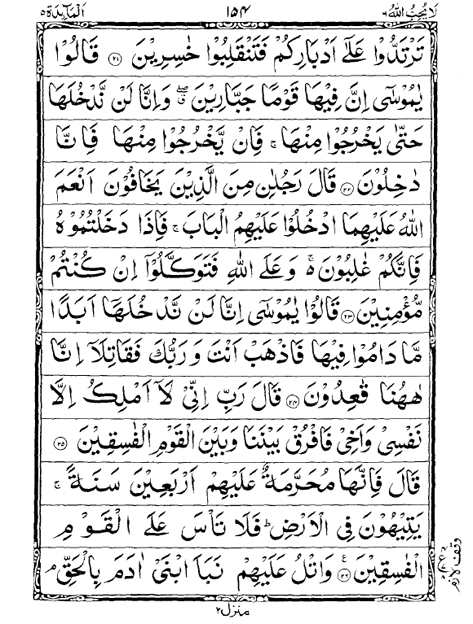 لا يحب الله ٦ ١٥٤ المآئدة ٥
تَرْتَدُّوْا عَلٰٓى اَدْبَارِكُمْ فَتَنْقَلِبُوْا خٰسِرِيْنَ ﴿٢١﴾ قَالُوْا
يٰمُوْسٰٓى اِنَّ فِيْهَا قَوْمًا جَبَّارِيْنَ ۖ وَاِنَّا لَنْ نَّدْخُلَهَا
حَتّٰى يَخْرُجُوْا مِنْهَا ۚ فَاِنْ يَّخْرُجُوْا مِنْهَا فَاِنَّا
دٰخِلُوْنَ ﴿٢٢﴾ قَالَ رَجُلٰنِ مِنَ الَّذِيْنَ يَخَافُوْنَ اَنْعَمَ
اللّٰهُ عَلَيْهِمَا ادْخُلُوْا عَلَيْهِمُ الْبَابَ ۚ فَاِذَا دَخَلْتُمُوْهُ
فَاِنَّكُمْ غٰلِبُوْنَ ۚ وَعَلَى اللّٰهِ فَتَوَكَّلُوْٓا اِنْ كُنْتُمْ
مُّؤْمِنِيْنَ ﴿٢٣﴾ قَالُوْا يٰمُوْسٰٓى اِنَّا لَنْ نَّدْخُلَهَآ اَبَدًا
مَّا دَامُوْا فِيْهَا فَاذْهَبْ اَنْتَ وَرَبُّكَ فَقَاتِلَآ اِنَّا
هٰهُنَا قٰعِدُوْنَ ﴿٢٤﴾ قَالَ رَبِّ اِنِّيْ لَآ اَمْلِكُ اِلَّا
نَفْسِيْ وَاَخِيْ فَافْرُقْ بَيْنَنَا وَبَيْنَ الْقَوْمِ الْفٰسِقِيْنَ ﴿٢٥﴾
قَالَ فَاِنَّهَا مُحَرَّمَةٌ عَلَيْهِمْ اَرْبَعِيْنَ سَنَةً ۚ
يَتِيْهُوْنَ فِي الْاَرْضِ ؕ فَلَا تَاْسَ عَلَى الْقَوْمِ
الْفٰسِقِيْنَ ﴿٢٦﴾ ع وَاتْلُ عَلَيْهِمْ نَبَاَ ابْنَيْ اٰدَمَ بِالْحَقِّ ۘ
وقف لازم
منزل ٢